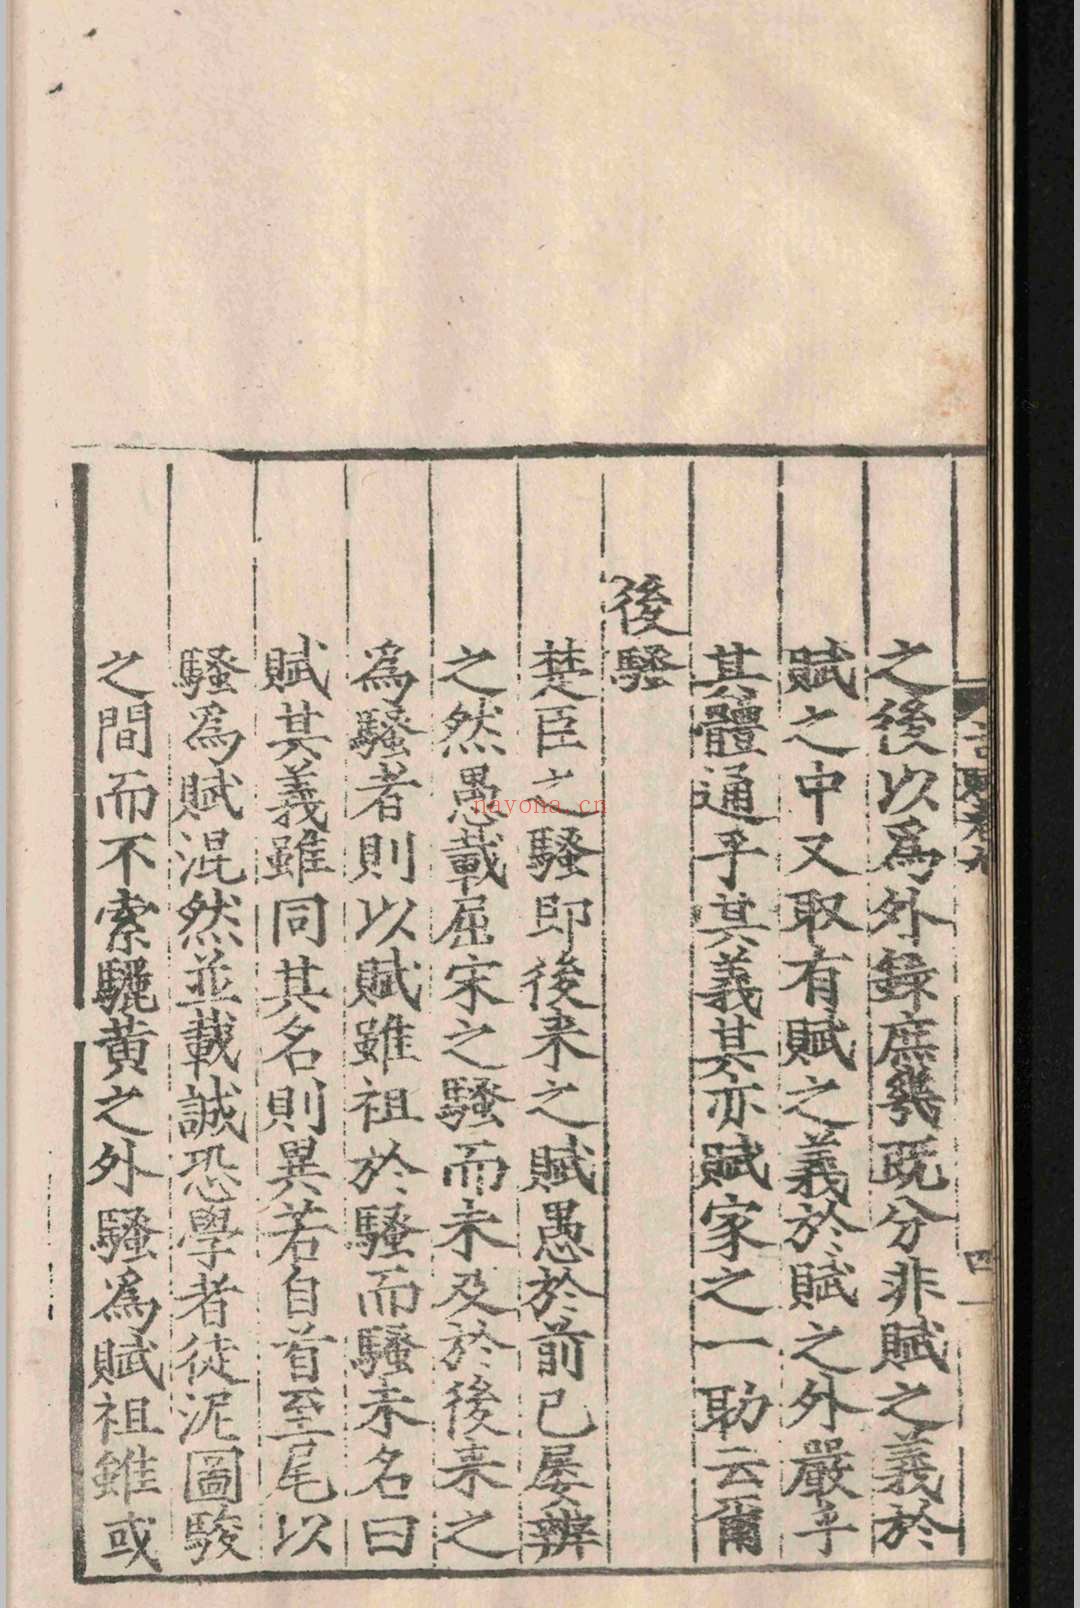 之後以為外錄庶幾既分非賦之義於
賦之中又取有賦之義於賦之外嚴乎
其體通乎其義其亦賦家之一助云爾
後騷
楚臣之騷即後来之賦愚於前已屡辨
之然愚載屈宋之騷而未及於後来之
為騷者則以賦雖祖於騷而騷未名曰
賦其義雖同其名則異若自首至尾以
騷爲賦混然並載誠恐學者徒泥圖駿
之間而不索驪黄之外騷爲賦祖雖或
nayona.cn